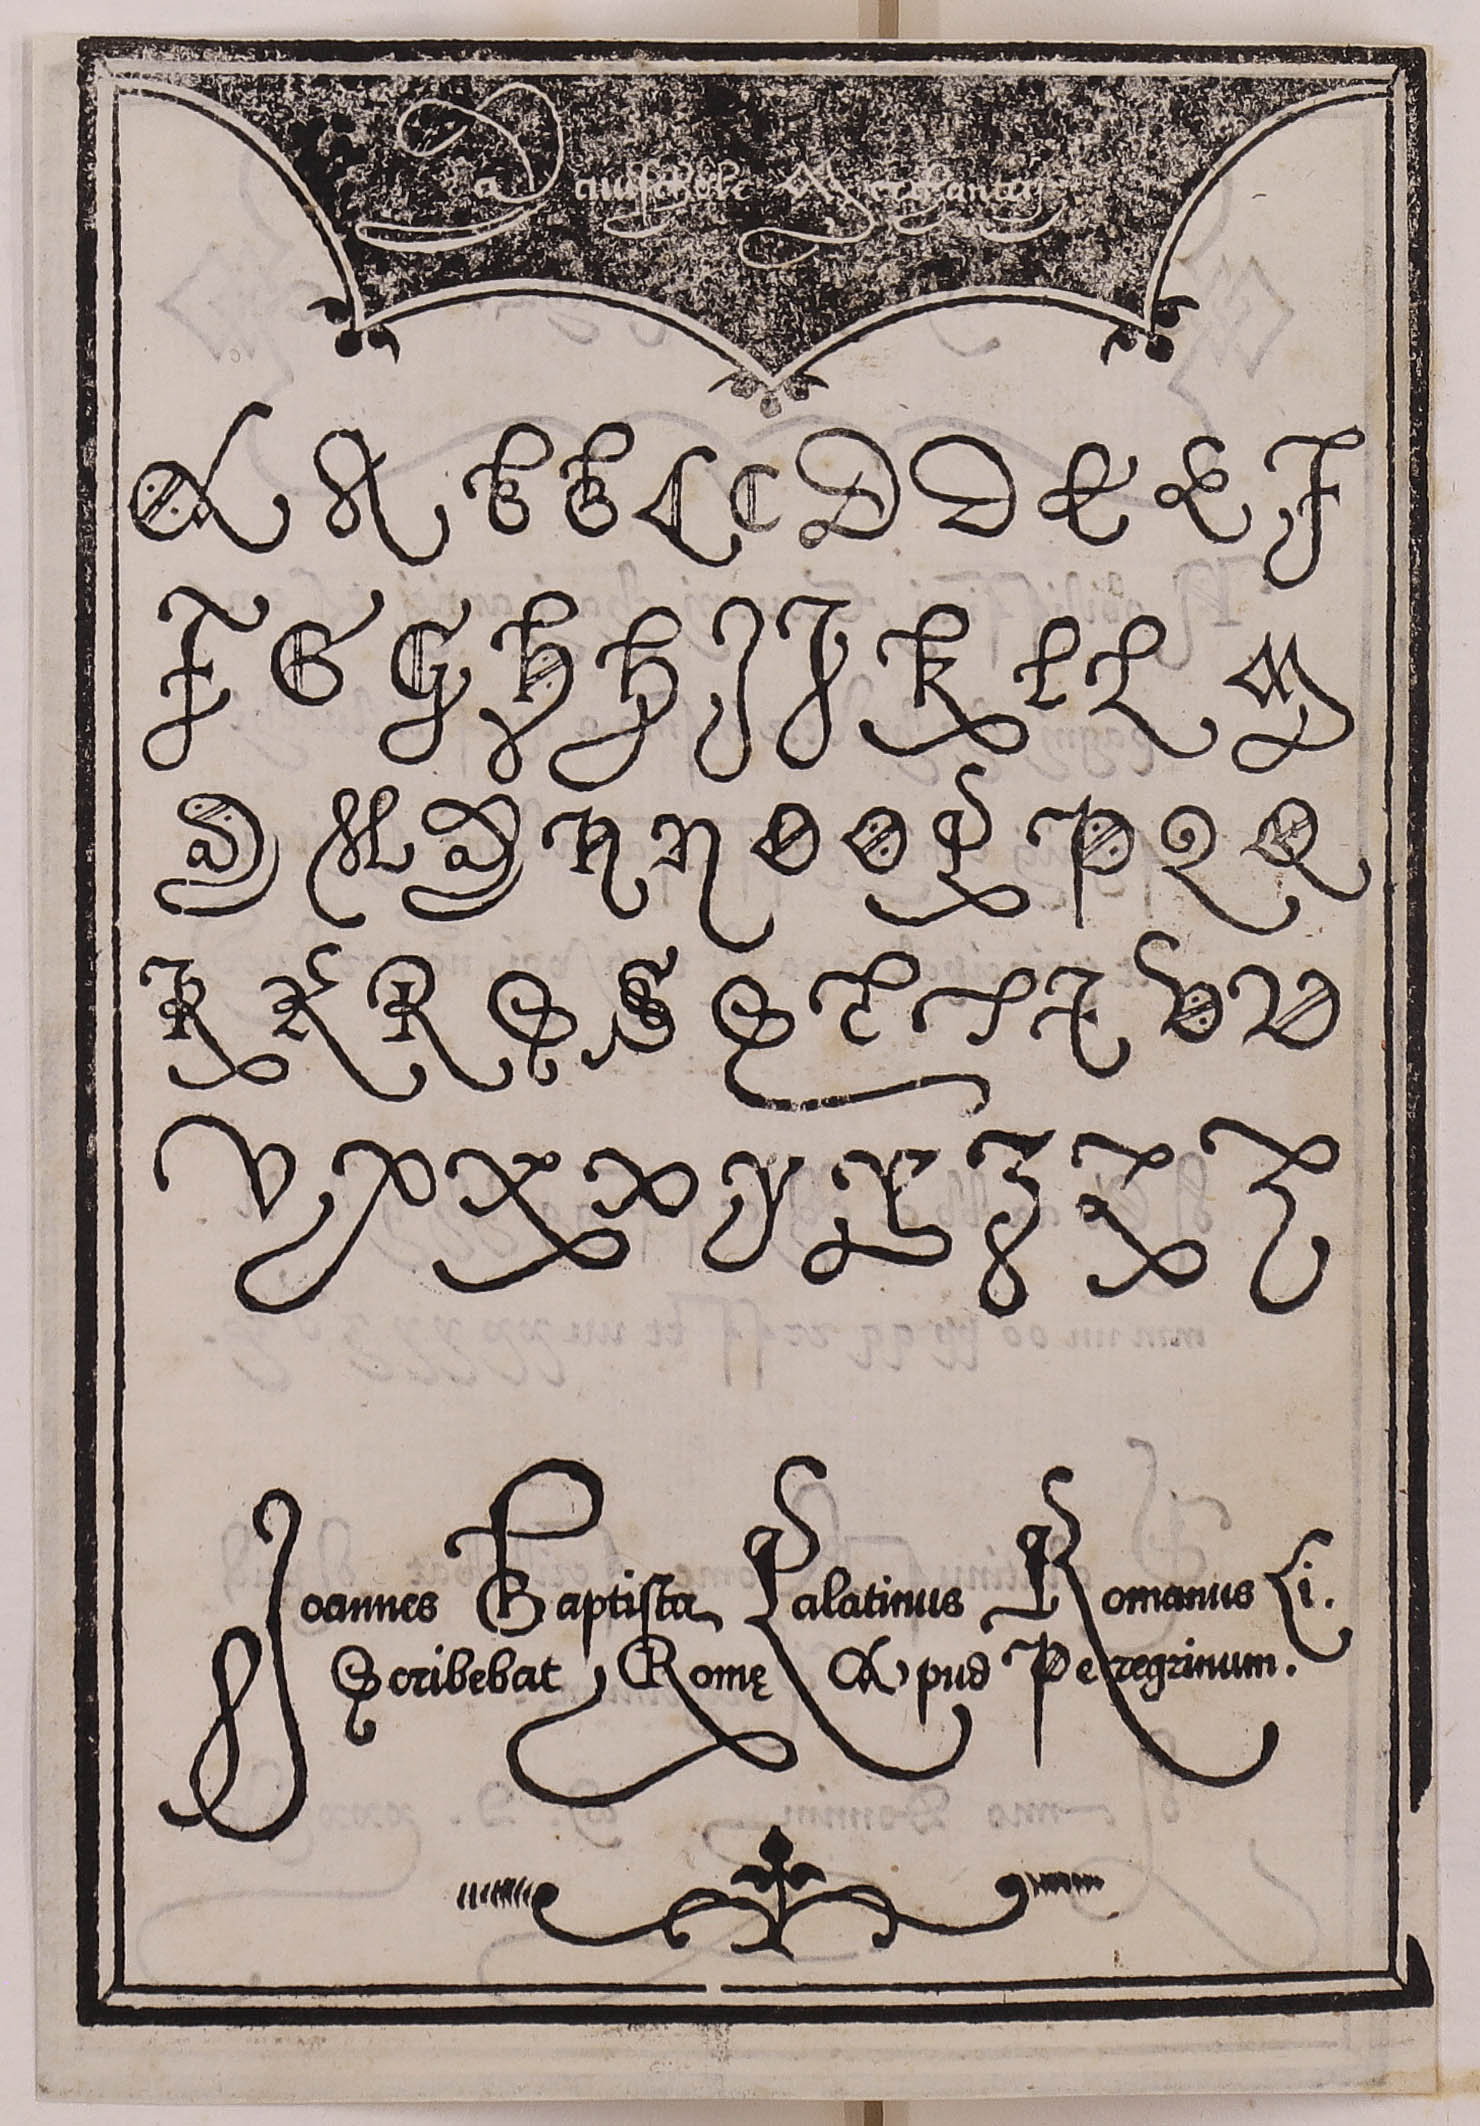 Maiuschole Merchantis
A A B B C C D D E E F
F G G H H I I K L L M
M M M N N O O P P Q Q
R R R S S S T T T V V
V X X X Y Y Z Z Z
Joannes Baptista Palatinus Romanus Ci.
Scribebat Romę Apud Peregrinum.